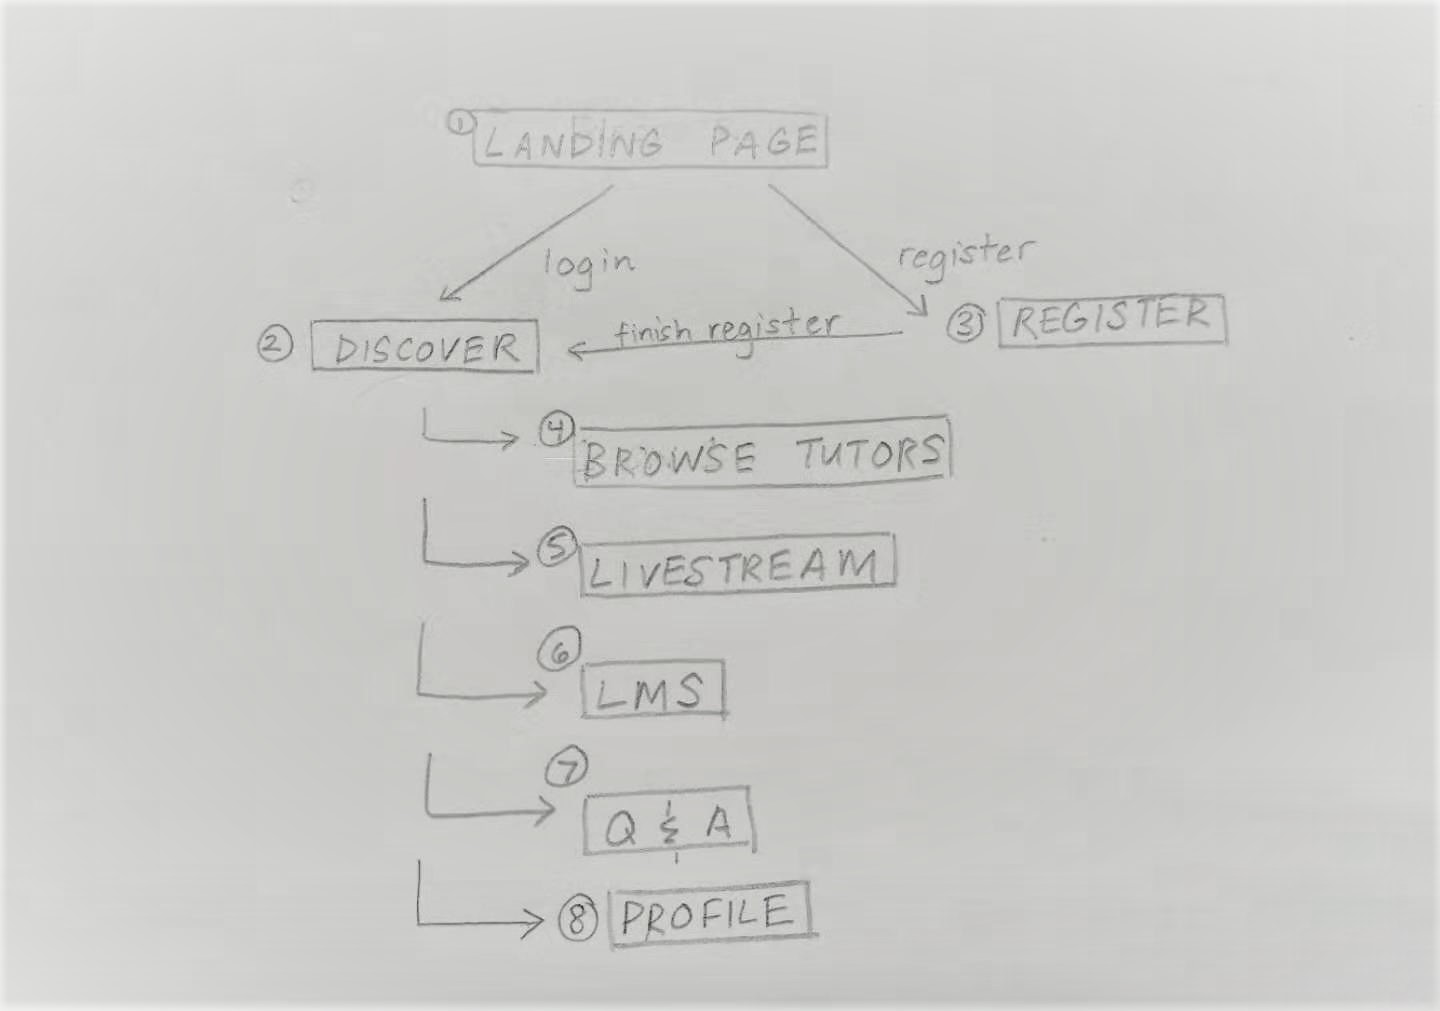 ① LANDING PAGE
login
register
② DISCOVER
finish register
③ REGISTER
④ BROWSE TUTORS
⑤ LIVESTREAM
⑥ LMS
⑦ Q & A
⑧ PROFILE